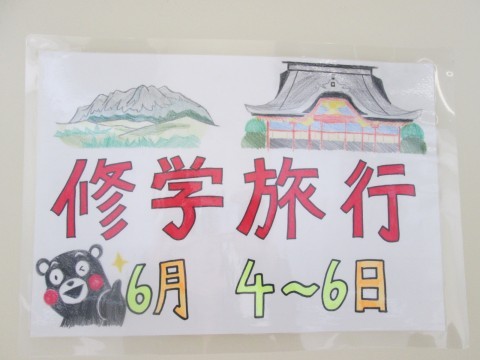 修学旅行
6月 4〜6日